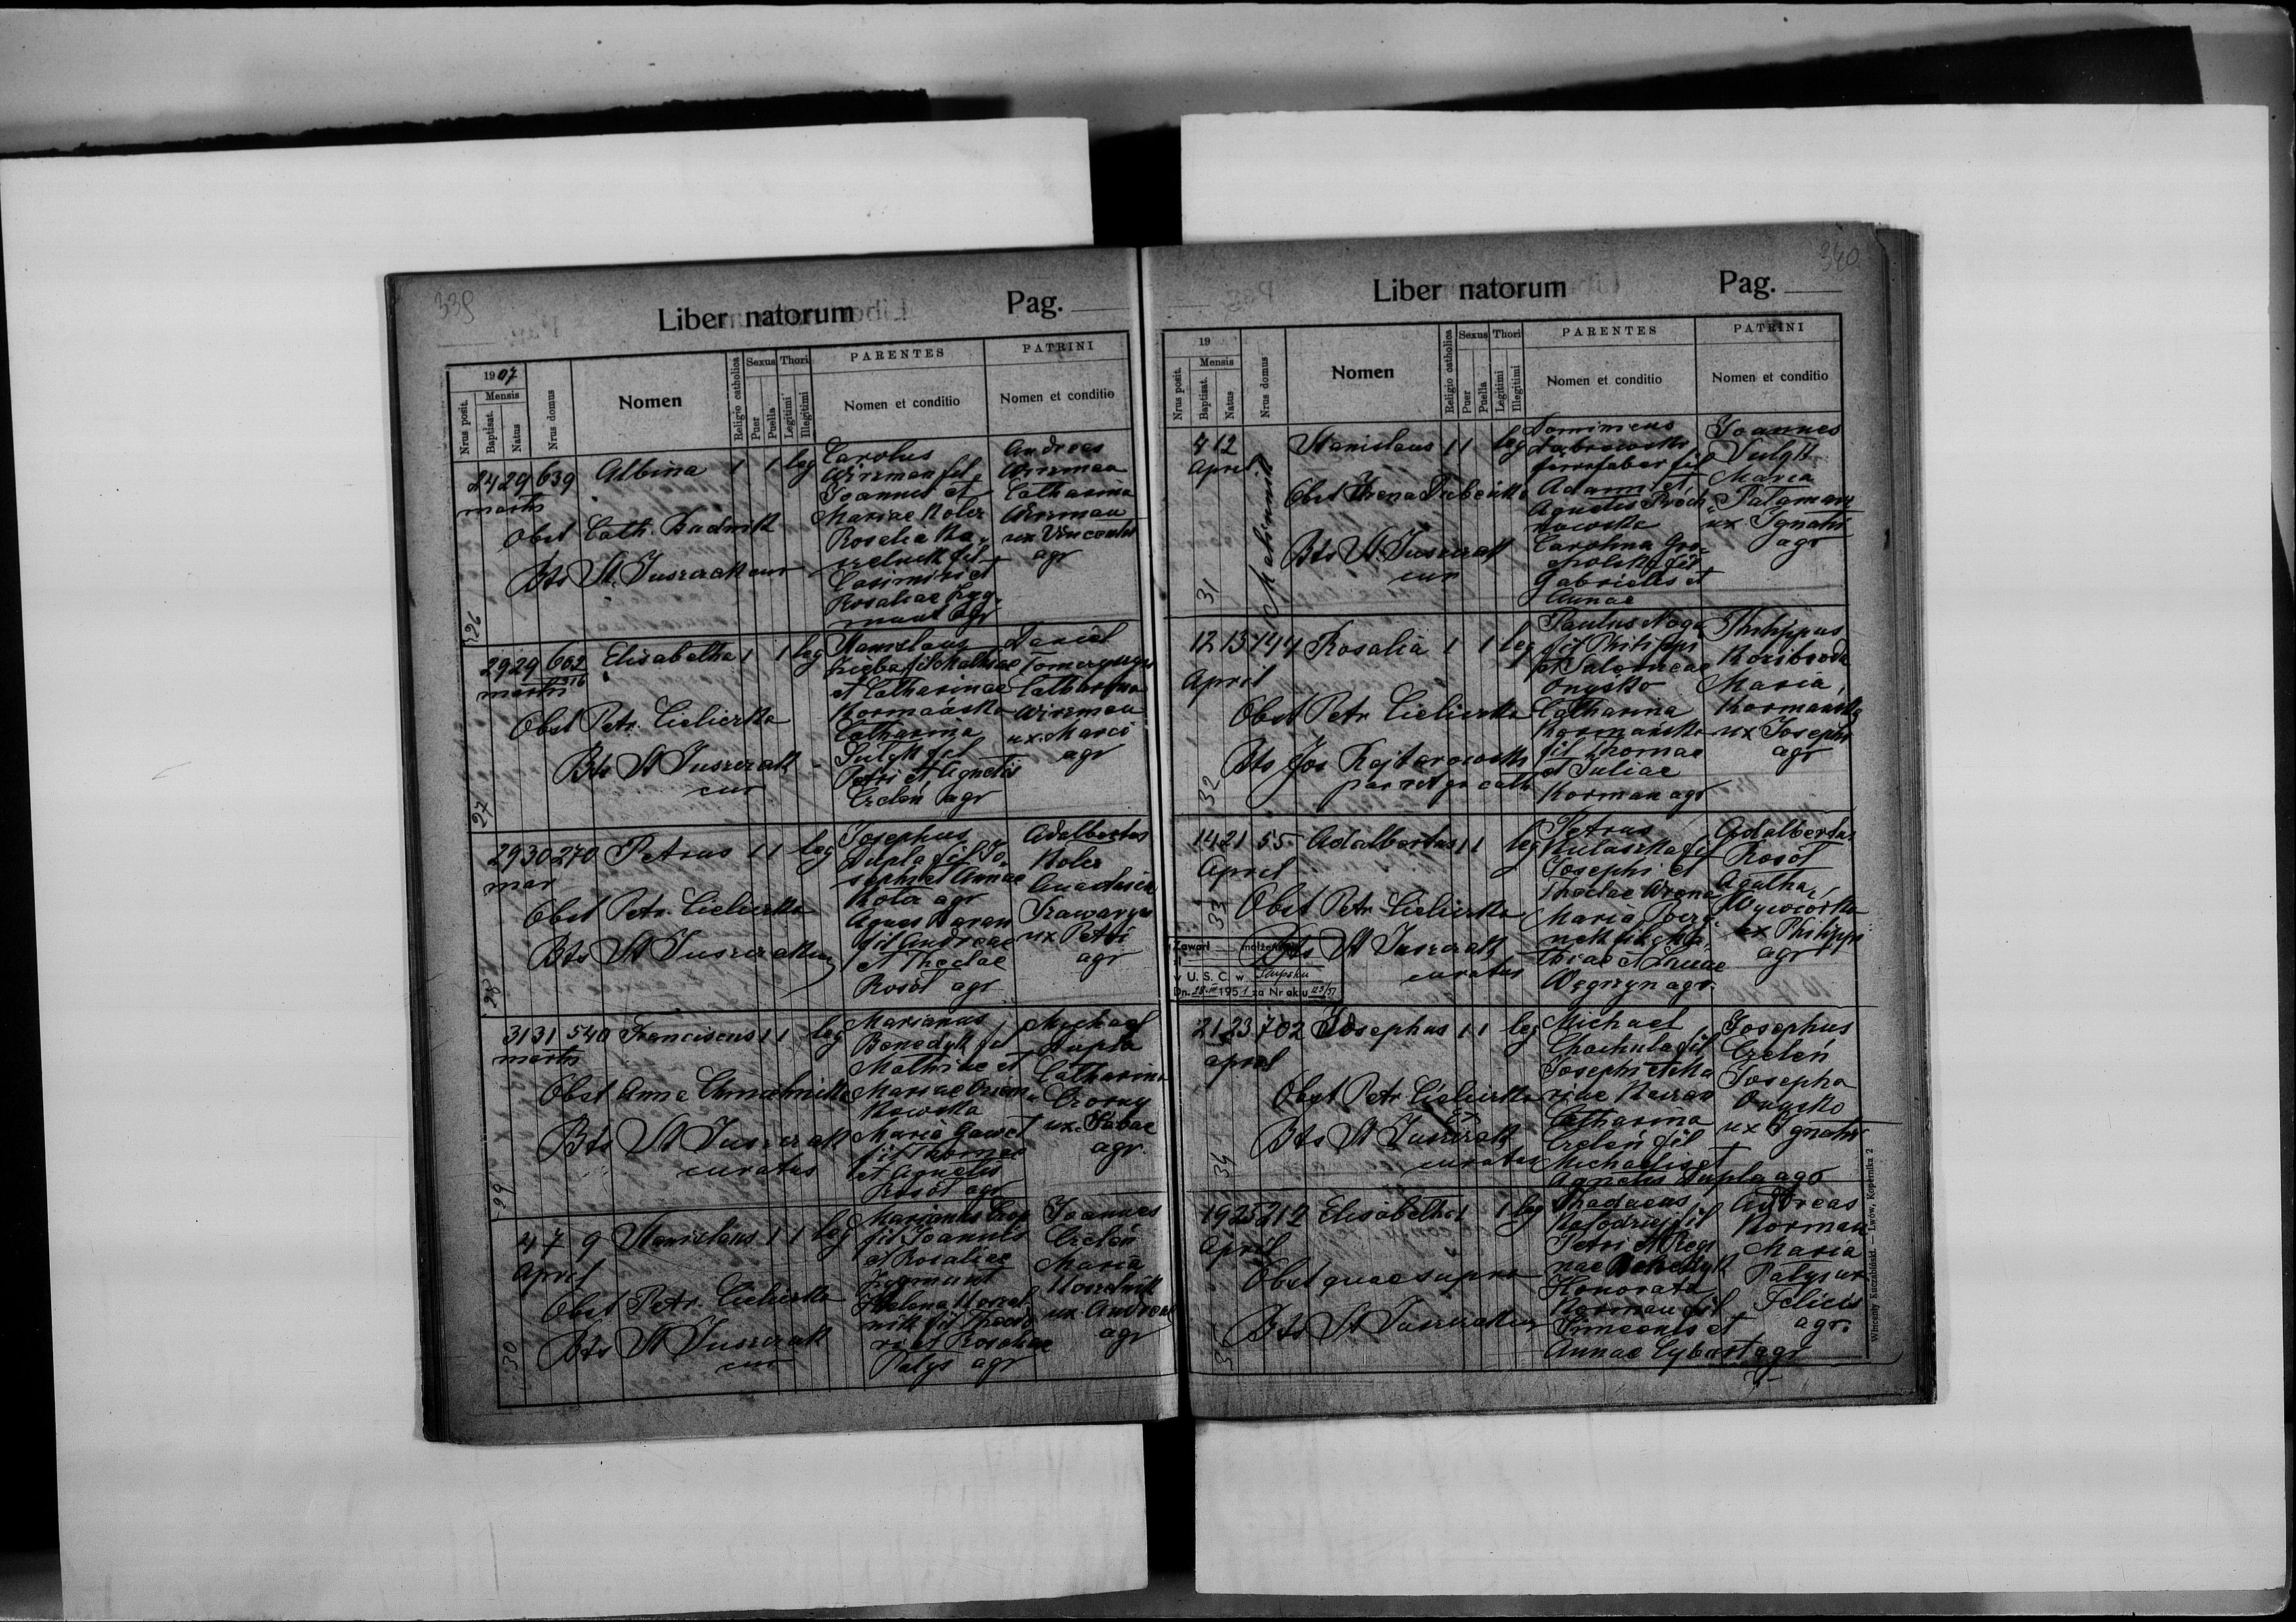 339
Liber natorum
Pag.
1907
Mensis
Nrus posit.
Baptisat.
Natus
Nrus domus
Nomen
Religio catholica
Sexus
Puer
Puella
Thori
Legitimi
Illegitimi
PARENTES
Nomen et conditio
PATRINI
Nomen et conditio
24 29 639 Albina 1 1 leg
martii
Obst Cath. Budnik
Bts St. Juszczak cur
26
Carolus
Wirzman fil
Joannis et
Mariae Koler
Rosalia
fil
Casimiri et
Rosaliae Zyg
munt agr
Andreas
Wirzman
Catharina
Wirzman
ux Vincentii
agr
29 29 602 Elisabetha 1 1 leg
martii 316
Obst Petr. Cieliczka
Bts St Juszczak
cur
27
Stanislaus
Zięba fil Mathiae
et Catharinae
Kormańska
Catharina
Sulyk fil
Petri et Agnetis
Czeleń agr
Daniel
Catharina
Wirzman
ux Marci
agr
29 30 270 Petrus 1 1 leg
mar
Obst Petr. Cieliczka
Bts St Juszczak cur
28
Josephus
Dupla fil Jo
sephi et Annae
Koler agr
Agnes Baran
fil Andreae
et Theclae
Rosół agr
Adalbertus
Koler
Anastasia
ux Petri
agr
31 31 540 Franciscus 1 1 leg
martii
Obst Anna
Bts St Juszczak
curatus
29
Marianus
Benedyk fil
Mathiae et
Mariae
Maria Gaweł
fil Thomae
et Agnetis
Rosół agr
Michael
Dupla
Catharina
Czorny
ux Sabae
agr.
4 7 9 Stanislaus 1 1 leg
April
Obst Petr. Cieliczka
Bts St Juszczak
cur
30
Marianus
fil Joannis
et Rosaliae
Zygmunt
Helena Koszel
nik fil Theodo
ri et Rosaliae
Palys agr
Joannes
Czeleń
Maria
Koszelnik
ux Andreae
agr
340
Liber natorum
Pag.
19
Mensis
Nrus posit.
Baptisat.
Natus
Nrus domus
Nomen
Religio catholica
Sexus
Puer
Puella
Thori
Legitimi
Illegitimi
PARENTES
Nomen et conditio
PATRINI
Nomen et conditio
4 12 Stanislaus 1 1 leg
April
Obst Irena
Bts St Juszczak
cur
31
Dominicus
Dąbrowski
ferrifaber fil
Adami et
Agnetis Proch
nowska
Carolina Gro
cholska fil
Gabrielis et
Annae
Joannes
Sulyk
Maria
ux Ignatii
agr
12 13 144 Rosalia 1 1 leg
April
Obst Petr. Cieliczka
Bts Jos Kajtarowski
par rit gr cath
32
Paulus Noga
fil Philippi
et Salomeae
Onyśko
Catharina
Kormańska
fil Thomae
et Juliae
Korman agr
Philippus
Kozibroda
Maria
Kormańska
ux Josephi
agr
14 21 55 Adalbertus 1 1 leg
April
33 Obst Petr Cieliczka
Bts St Juszczak
curatus
Zawarł małżeństwo
w U. S. C. w Słupsku
Dn. 28.III 1951 za Nr aktu 123/51
Petrus
Kulaszka fil
Josephi et
Theclae Wrona
Maria
fil Ma
thiae et Annae
Węgrzyn agr.
Adalbertus
Rosół
Agatha
ux Philippi
agr
21 23 702 Josephus 1 1 leg
april
Obst Petr Cieliczka
Bts St Juszczak
curatus
34
Michael
Chachula fil
Josephi et Ma
riae
Catharina
Czeleń fil
Michaelis et
Agnetis Dupla agr
Josephus
Czeleń
Josepha
Onyśko
ux Ignatii
agr
19 25 212 Elisabetha 1 1 leg
April
Obst quae supra
Bts St Juszczak cur
Thadaeus
Kołodziej fil
Petri et Regi
nae Benedyk
Honorata
Korman fil
Simeonis et
Annae Cybart agr
Andreas
Korman
Maria
Palys ux
Felicis
agr.
Wincenty Kuczabiński. — Lwów, Kopernika 2